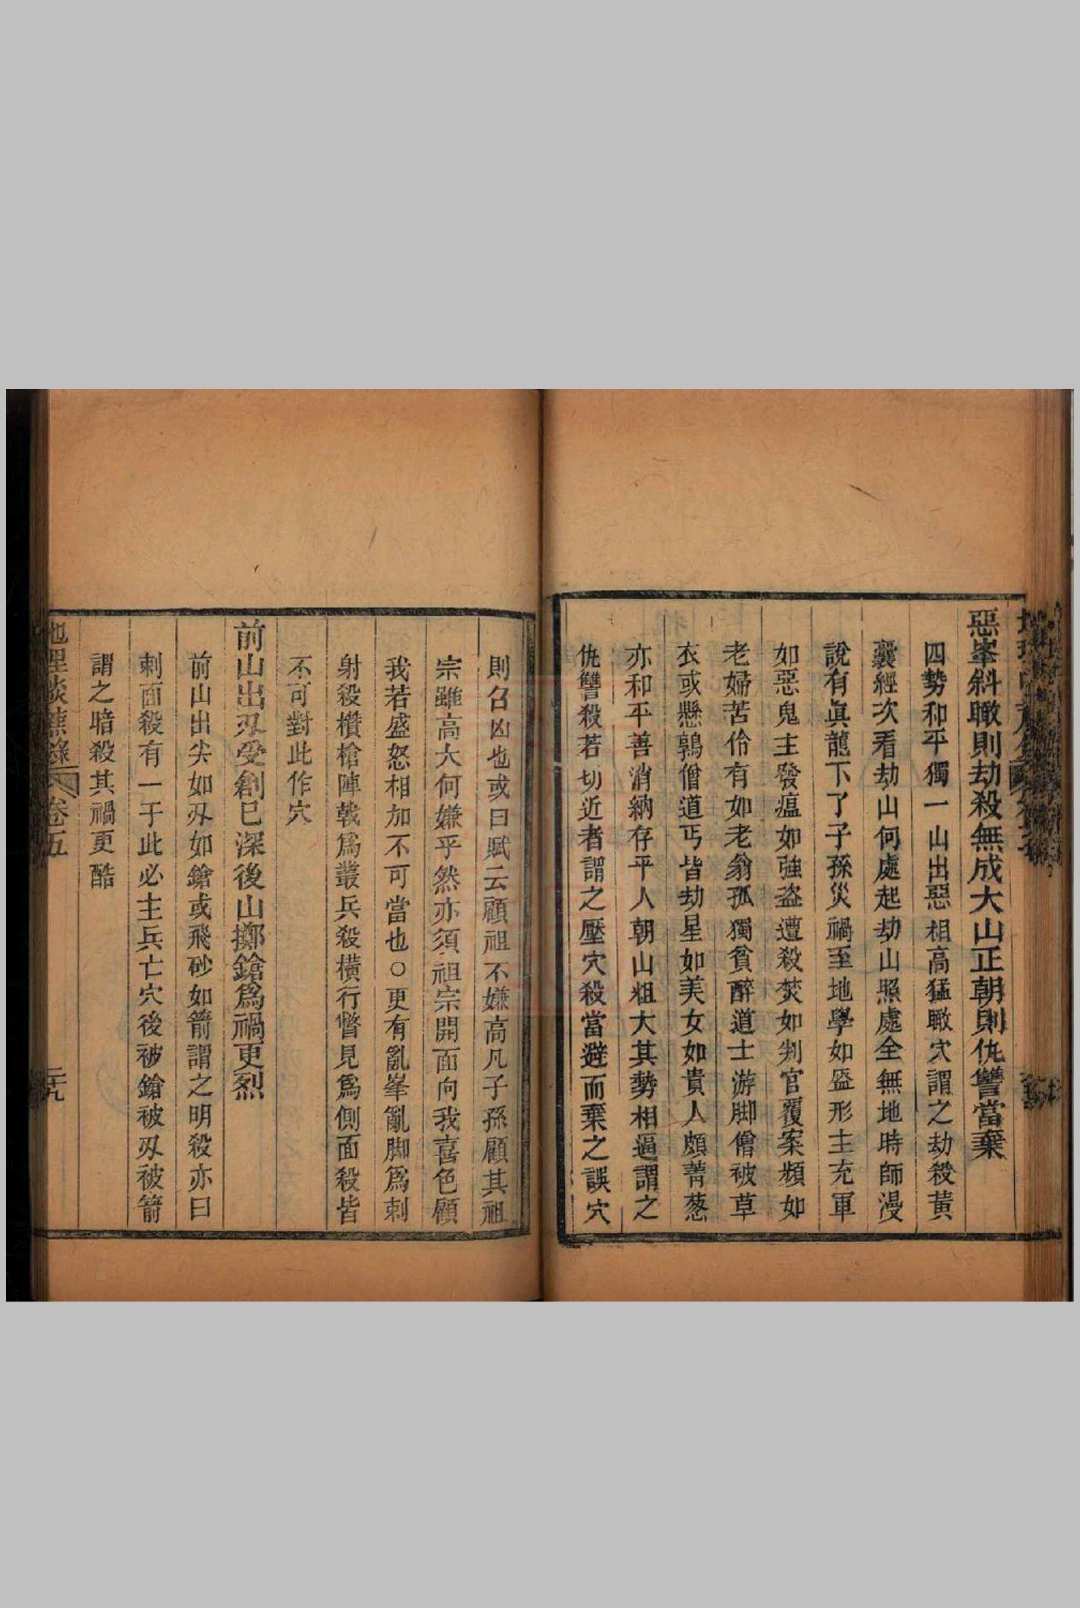 惡峯斜瞰則劫殺無成大山正朝則仇讐當棄
四勢和平獨一山出惡相高猛瞰穴謂之劫殺黃
囊經次看劫山何處起劫山照處全無地時師漫
說有眞龍下了子孫災禍至地學如盔形主充軍
如惡鬼主發瘟如强盗遭殺焚如判官覆案頻如
老婦苦伶有如老翁孤獨貧醉道士游脚僧被草
衣或懸鶉僧道丐皆劫星如美女如貴人頗菁葱
亦和平善消納存乎人朝山粗大其勢相逼謂之
仇讐殺若切近者謂之壓穴殺當避而棄之誤穴
則召凶也或曰賦云顧祖不嫌高凡子孫顧其祖
宗雖高大何嫌乎然亦須祖宗開面向我喜色顧
我若盛怒相加不可當也○更有亂峯亂脚爲刺
射殺欑槍陣戟爲叢兵殺橫行瞥見爲側面殺皆
不可對此作穴
前山出刄受創已深後山擲鎗爲禍更烈
前山出尖如刄如鎗或飛砂如箭謂之明殺亦曰
刺面殺有一于此必主兵亡穴後被鎗被刄被箭
謂之暗殺其禍更酷
卷五
二十九